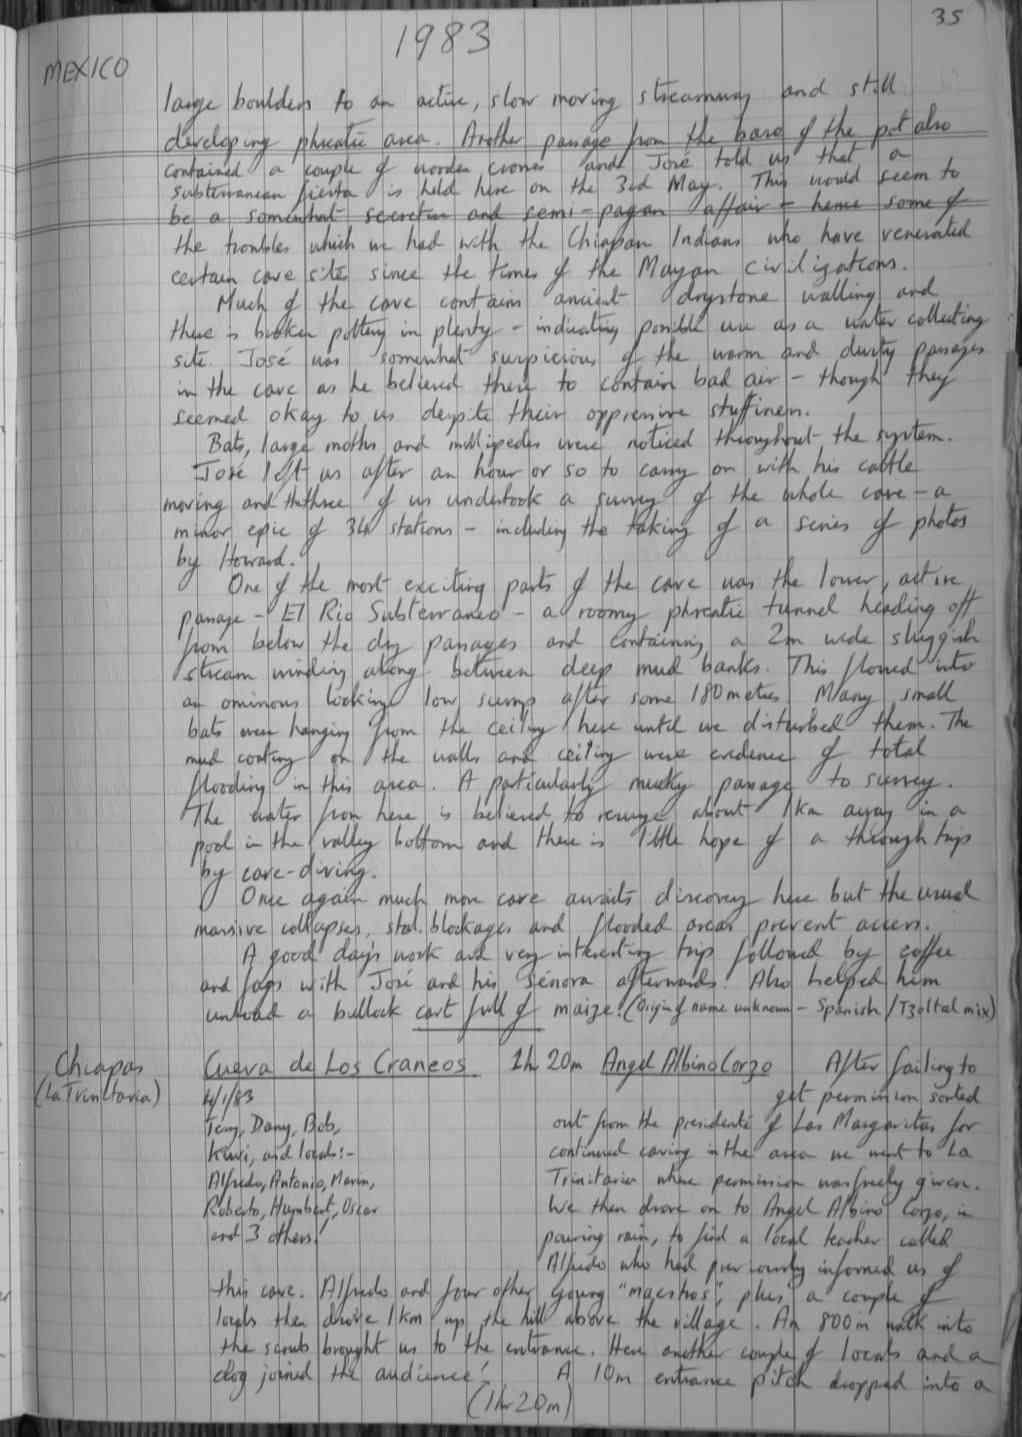 35
1983
MEXICO
large boulders to an active, slow moving streamway and still
developing phreatic area. Another passage from the base of the pot also
contained a couple of wooden crosses and José told us that a
subterranean fiesta is held here on the 3rd May. This would seem to
be a somewhat secretive and semi-pagan affair - hence some of
the troubles which we had with the Chiapan Indians who have venerated
certain cave sites since the times of the Mayan civilizations.
Much of the cave contains ancient drystone walling and
there is broken pottery in plenty - indicating possible use as a water collecting
site. José was somewhat suspicious of the warm and dusty passages
in the cave as he believed them to contain bad air - though they
seemed okay to us despite their oppressive stuffiness.
Bats, large moths and millipedes were noticed throughout the system.
José left us after an hour or so to carry on with his cattle
moving and the three of us undertook a survey of the whole cave - a
minor epic of 34 stations - including the taking of a series of photos
by Howard.
One of the most exciting parts of the cave was the lower, active
passage - El Rio Subterraneo - a roomy phreatic tunnel heading off
from below the dry passages and containing a 2m wide sluggish
stream winding along between deep mud banks. This flowed into
an ominous looking low sump after some 180 metres. Many small
bats were hanging from the ceiling here until we disturbed them. The
mud coating on the walls and ceiling were evidence of total
flooding in this area. A particularly mucky passage to survey.
The water from here is believed to resurge about 1km away in a
pool in the valley bottom and there is little hope of a through trip
by cave-diving.
Once again much more cave awaits discovery here but the usual
massive collapses, stal. blockages and flooded areas prevent access.
A good day's work and very interesting trip followed by coffee
and fags with José and his Senora afterwards. Also helped him
unload a bullock cart full of maize! (Origin of name unknown - Spanish/Tzoltal mix)
Chiapas
(La Trinitaria)
Cueva de Los Craneos 1h 20m Angel Albino Corzo After failing to
4/1/83 get permission sorted
Tony, Dany, Bob, out from the presidenté of Las Margaritas for
Kiwi, and locals:- continued caving in the area we went to La
Alfredo, Antonio, Marin, Trinitaria where permission was freely given.
Roberto, Humbert, Oscar We then drove on to Angel Albino Corzo, in
and 3 others! pouring rain, to find a local teacher called
Alfredo who had previously informed us of
this cave. Alfredo and four other young "maestros", plus a couple of
locals then drove 1km up the hill above the village. An 800m walk into
the scrub brought us to the entrance. Here another couple of locals and a
dog joined the audience! A 10m entrance pitch dropped into a
(1hr 20m)